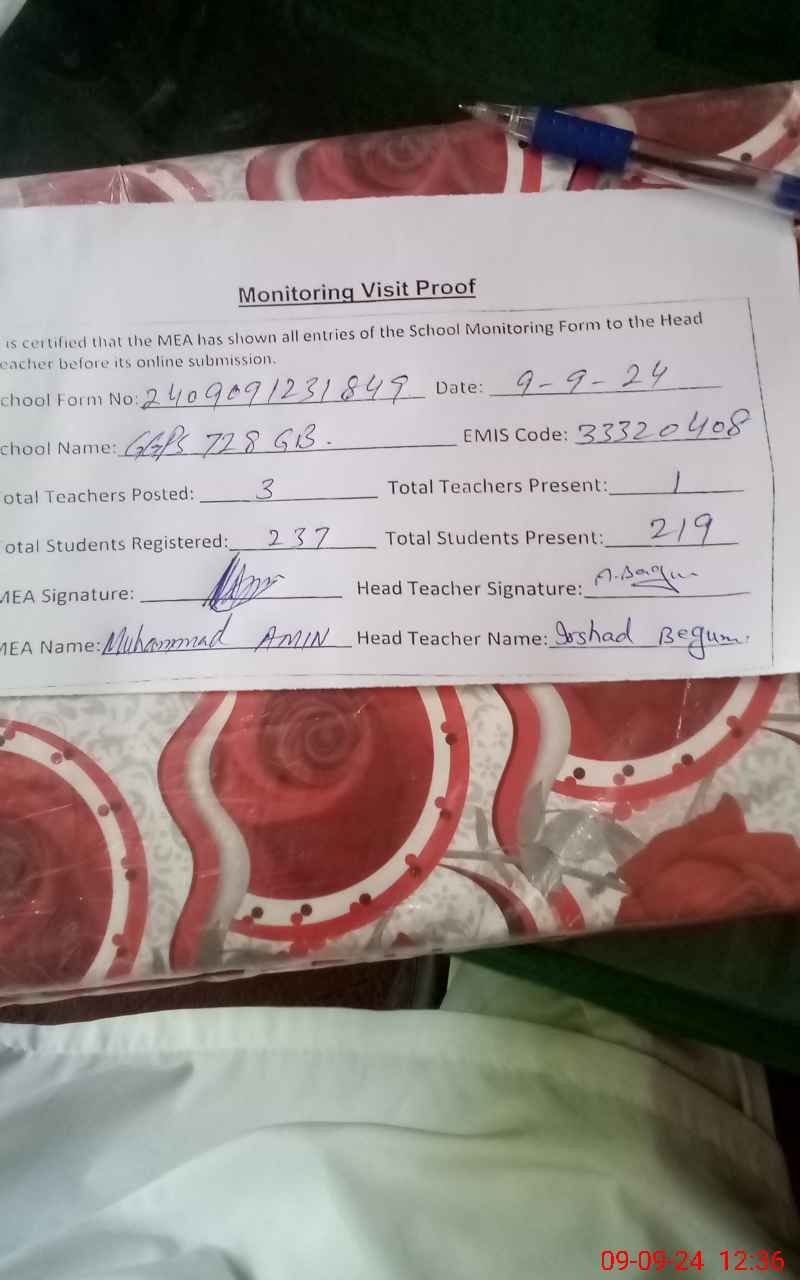 Monitoring Visit Proof
is certified that the MEA has shown all entries of the School Monitoring Form to the Head
eacher before its online submission.
chool Form No: 2409091231849 Date: 9-9-24
chool Name: GGPS 728 GB. EMIS Code: 33320408
otal Teachers Posted: 3 Total Teachers Present: 1
otal Students Registered: 237 Total Students Present: 219
MEA Signature: Head Teacher Signature: A.Begum
MEA Name: Muhammad AMIN Head Teacher Name: Irshad Begum.
09-09-24 12:36